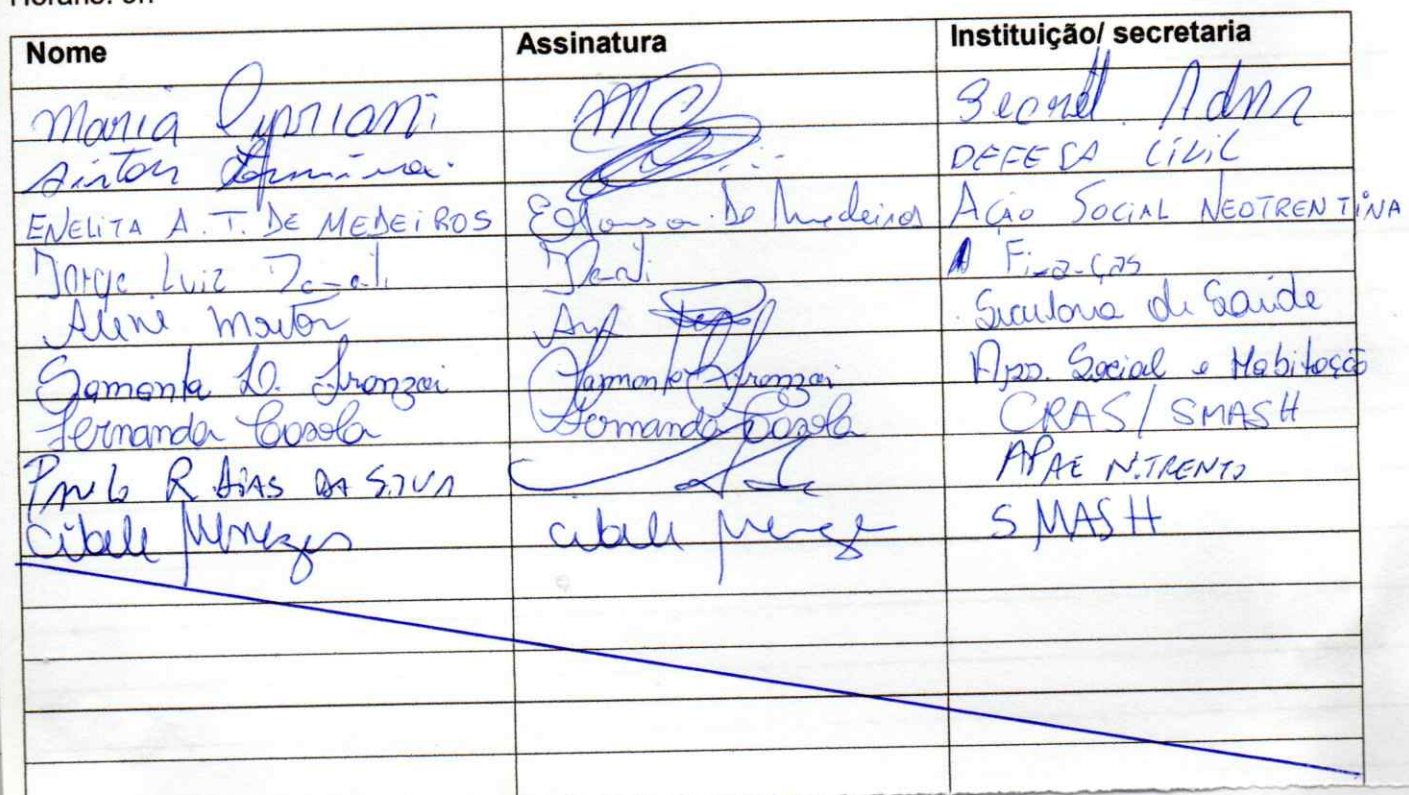 Nome Assinatura Instituição/ secretaria
Maria Cipriani MC Secret. Admn
Airton DEFESA CiViL
ENELITA A. T. DE MEDEiROS De Medeiros AÇÃO SOCIAL NEOTRENTiNA
Jorge Luiz Finanças
Aline Secretaria de Saúde
Samanta D. Franzoi Samanta Franzoi Ass. Social e Habitação
Fernanda Casola Fernanda Casola CRAS/ SMASH
PAULO R DiAS DA SILVA APAE N.TRENTO
Cibele Menezes Cibele SMASH